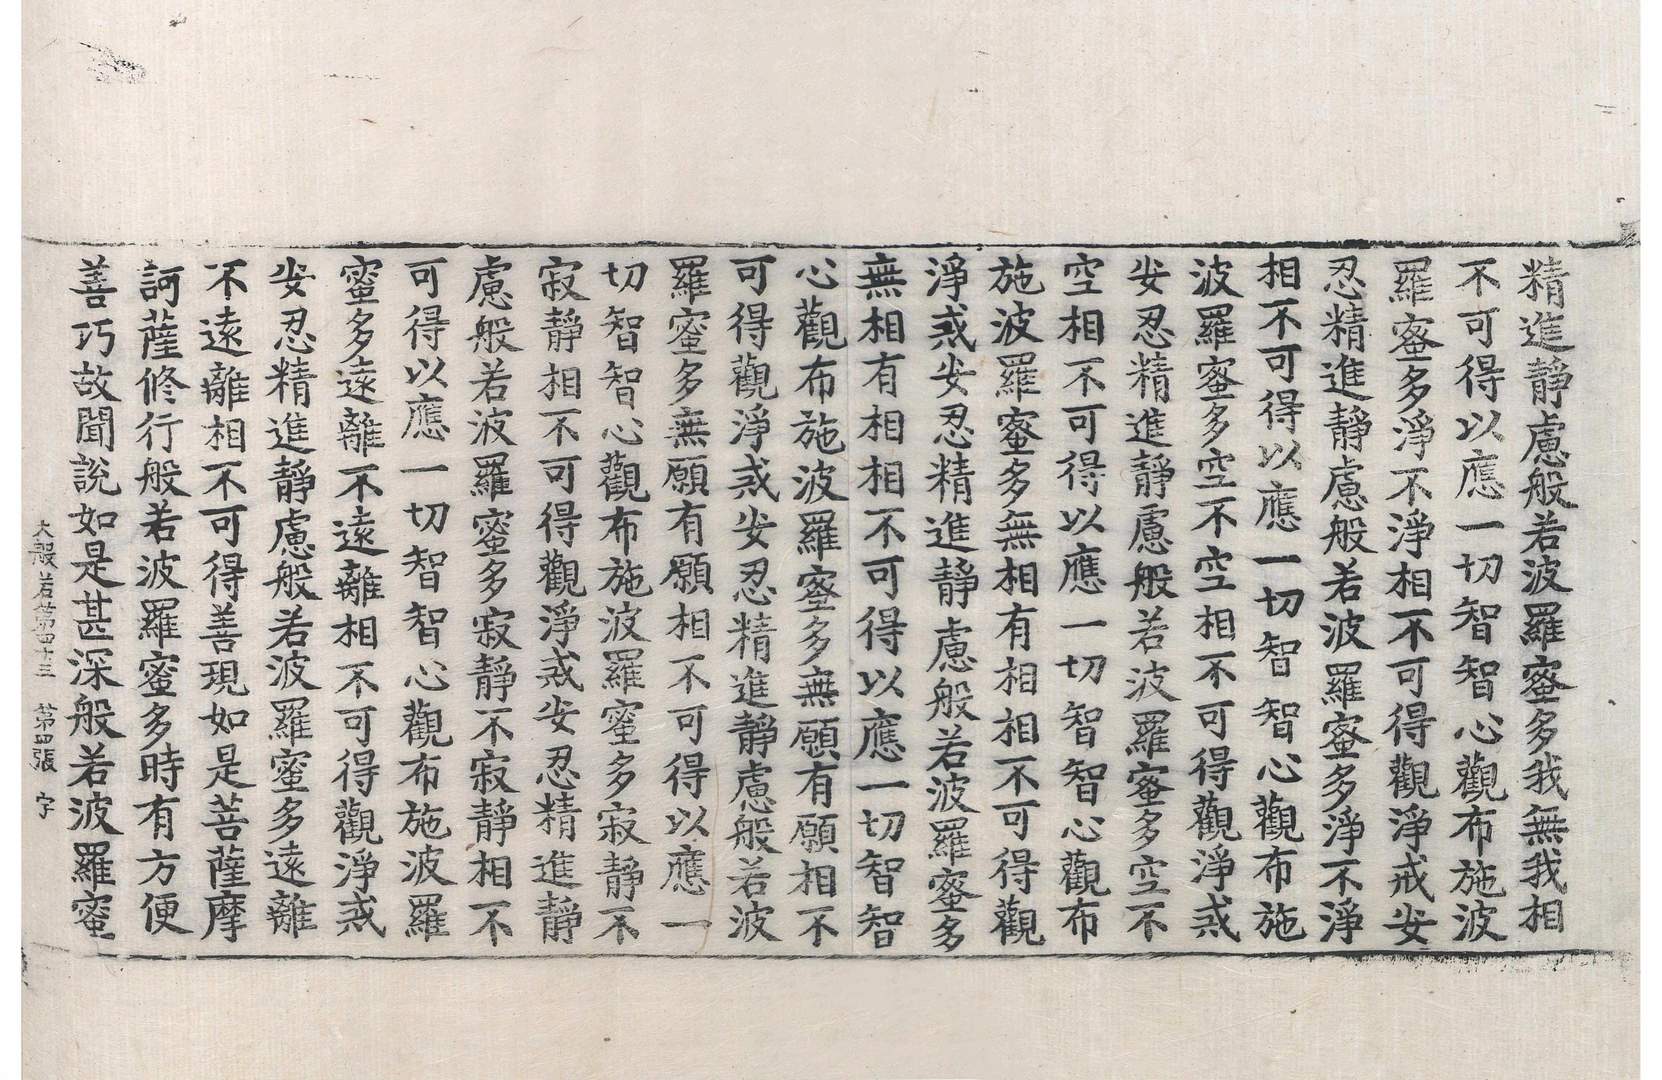 精進靜慮般若波羅蜜多我無我相
不可得以應一切智智心觀布施波
羅蜜多淨不淨相不可得觀淨戒安
忍精進靜慮般若波羅蜜多淨不淨
相不可得以應一切智智心觀布施
波羅蜜多空不空相不可得觀淨戒
安忍精進靜慮般若波羅蜜多空不
空相不可得以應一切智智心觀布
施波羅蜜多無相有相相不可得觀
淨戒安忍精進靜慮般若波羅蜜多
無相有相相不可得以應一切智智
心觀布施波羅蜜多無願有願相不
可得觀淨戒安忍精進靜慮般若波
羅蜜多無願有願相不可得以應一
切智智心觀布施波羅蜜多寂靜不
寂靜相不可得觀淨戒安忍精進靜
慮般若波羅蜜多寂靜不寂靜相不
可得以應一切智智心觀布施波羅
蜜多遠離不遠離相不可得觀淨戒
安忍精進靜慮般若波羅蜜多遠離
不遠離相不可得善現如是菩薩摩
訶薩修行般若波羅蜜多時有方便
善巧故聞說如是甚深般若波羅蜜
大般若第四十三 第四張 字